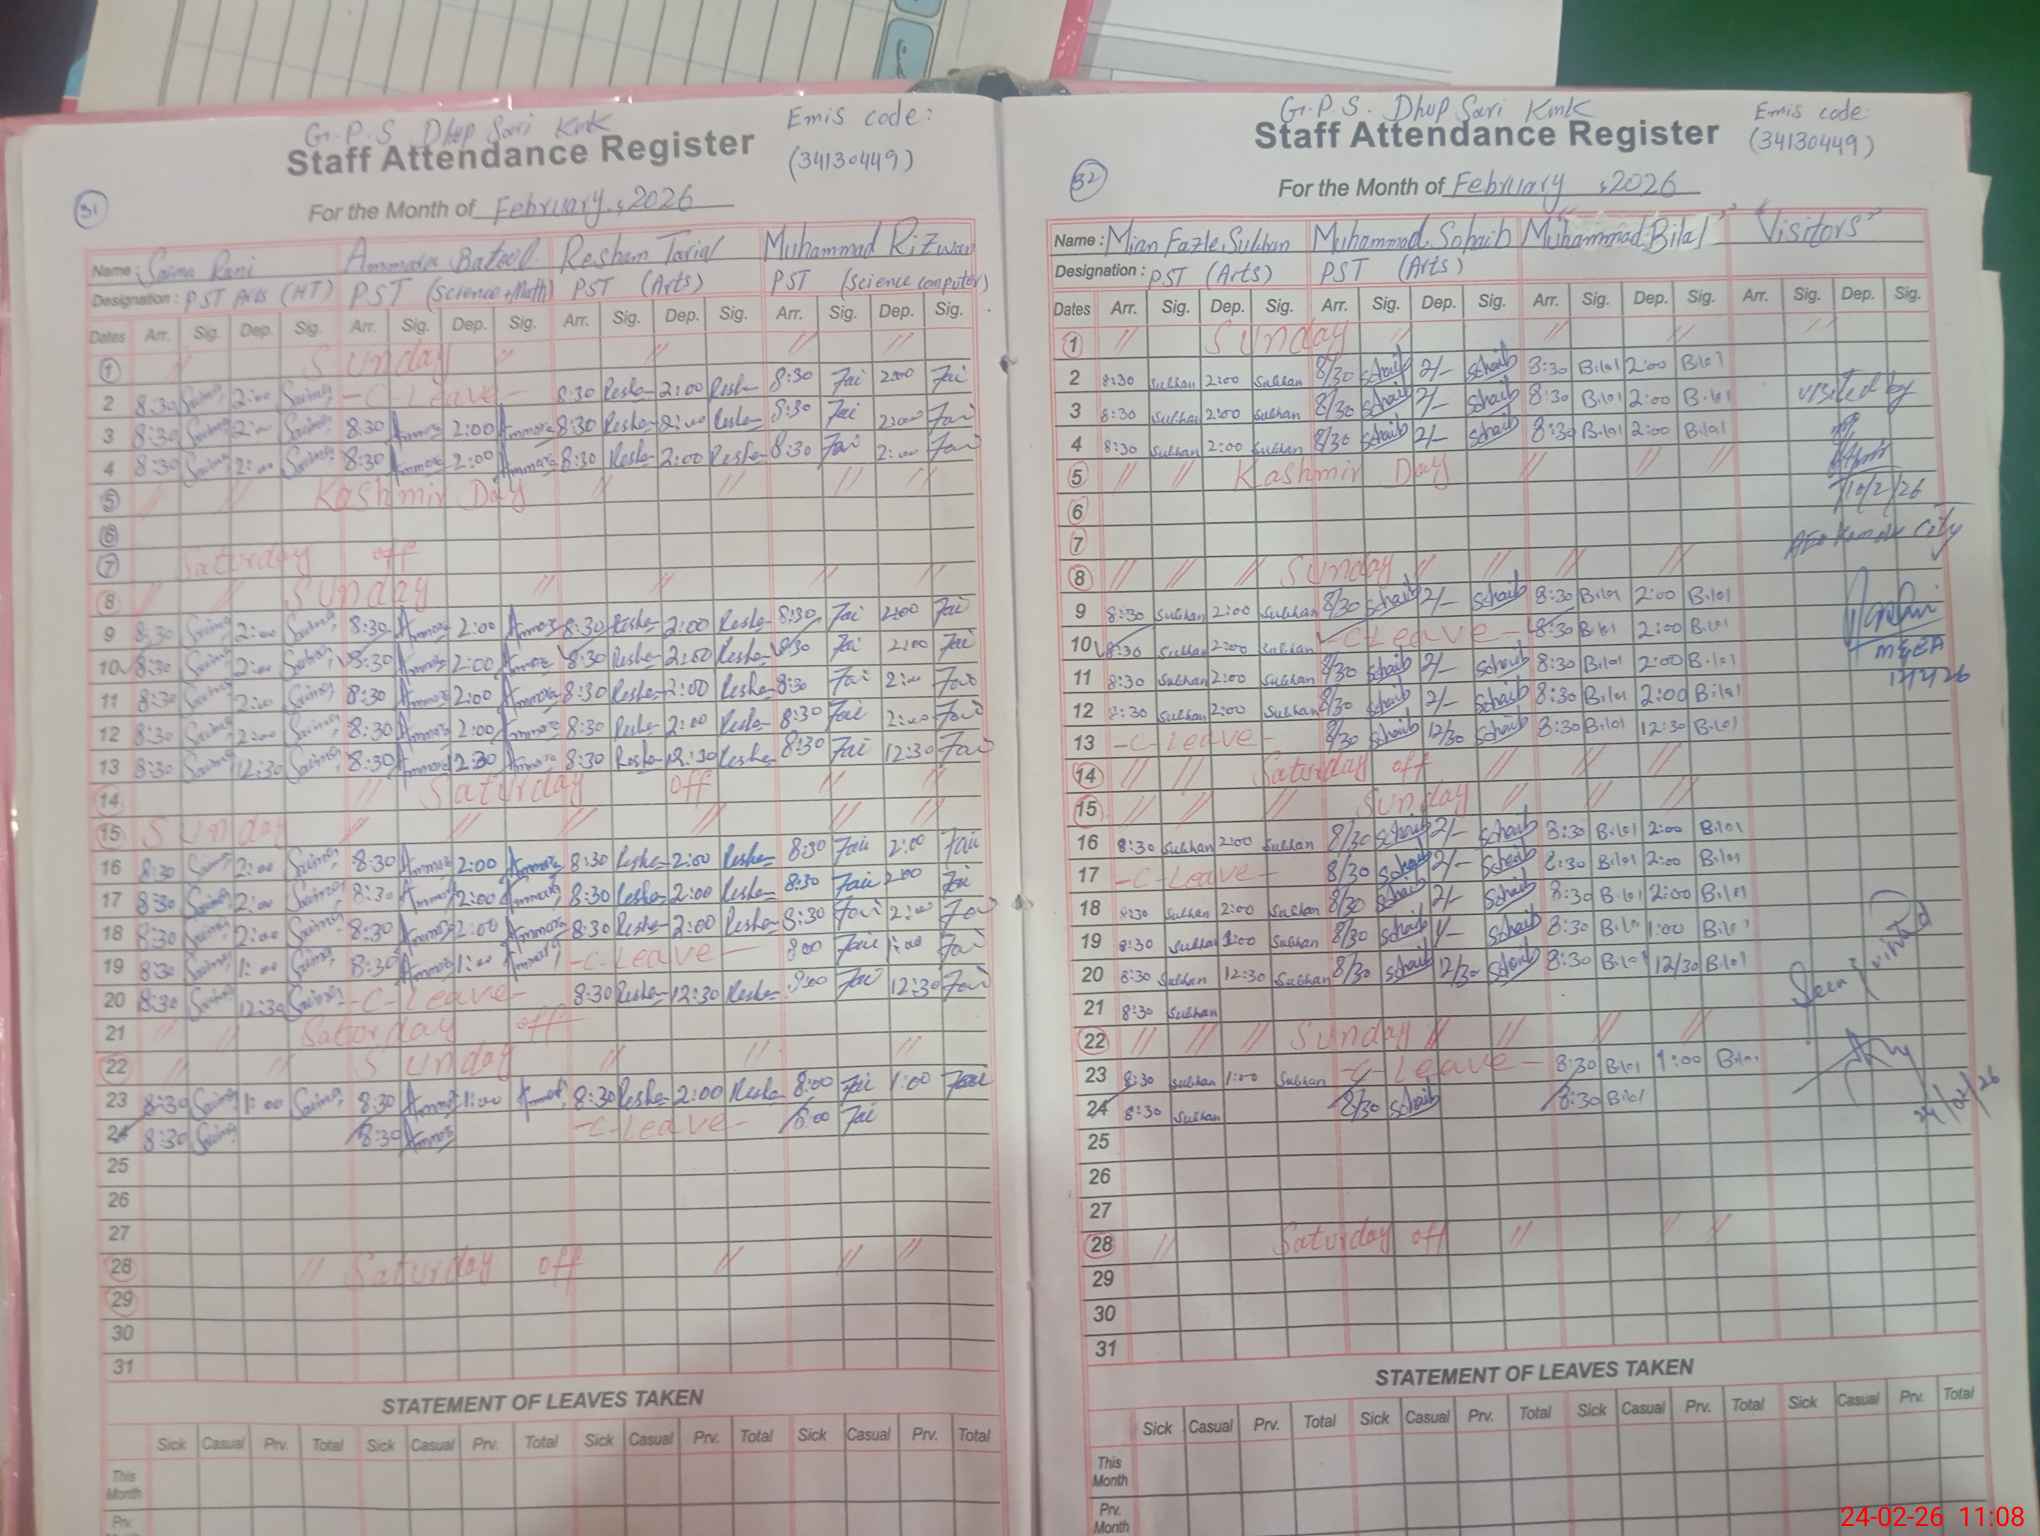 G.P.S. Dhup Sari Kmk
Emis code:
Staff Attendance Register
(34130449)
31
For the Month of February, 2026
Name: Saima Rani Ammara Batool Resham Tarial Muhammad Rizwan
Designation: PST Arts (HT) PST (Science+Math) PST (Arts) PST (Science computer)
Dates Arr. Sig. Dep. Sig. Arr. Sig. Dep. Sig. Arr. Sig. Dep. Sig. Arr. Sig. Dep. Sig.
1 // Sunday // // // //
2 8:30 2:00 -C-Leave- 8:30 Resha 2:00 Resha 8:30 Fai 2:00 Fai
3 8:30 2:00 8:30 2:00 8:30 Resha 2:00 Resha 8:30 Fai 2:00 Fai
4 8:30 2:00 8:30 2:00 8:30 Resha 2:00 Resha 8:30 Fai 2:00 Fai
5 // // Kashmir Day // // // //
6
7 Saturday off
8 // // Sunday // // // //
9 8:30 2:00 8:30 2:00 8:30 Resha 2:00 Resha 8:30 Fai 2:00 Fai
10 8:30 2:00 8:30 2:00 8:30 Resha 2:00 Resha 8:30 Fai 2:00 Fai
11 8:30 2:00 8:30 2:00 8:30 Resha 2:00 Resha 8:30 Fai 2:00 Fai
12 8:30 2:00 8:30 2:00 8:30 Resha 2:00 Resha 8:30 Fai 2:00 Fai
13 8:30 12:30 8:30 12:30 8:30 Resha 12:30 Resha 8:30 Fai 12:30 Fai
14 // Saturday off // //
15 Sunday // // // // // //
16 8:30 2:00 8:30 2:00 8:30 Resha 2:00 Resha 8:30 Fai 2:00 Fai
17 8:30 2:00 8:30 2:00 8:30 Resha 2:00 Resha 8:30 Fai 2:00 Fai
18 8:30 2:00 8:30 2:00 8:30 Resha 2:00 Resha 8:30 Fai 2:00 Fai
19 8:30 1:00 8:30 1:00 -C-Leave- 8:00 Fai 1:00 Fai
20 8:30 12:30 -C-Leave- 8:30 Resha 12:30 Resha 8:00 Fai 12:30 Fai
21 // // Saturday off
22 // // Sunday // // //
23 8:30 1:00 8:30 1:00 8:30 Resha 2:00 Resha 8:00 Fai 1:00 Fai
24 8:30 8:30 -C-Leave- 8:00 Fai
25
26
27
28 // Saturday off // // //
29
30
31
STATEMENT OF LEAVES TAKEN
Sick Casual Prv. Total Sick Casual Prv. Total Sick Casual Prv. Total Sick Casual Prv. Total
This Month
Prv.
G.P.S. Dhup Sari Kmk
Emis code:
Staff Attendance Register
(34130449)
32
For the Month of February, 2026
Name: Mian Fazle Subhan Muhammad Sohaib Muhammad Bilal "Visitors"
Designation: PST (Arts) PST (Arts)
Dates Arr. Sig. Dep. Sig. Arr. Sig. Dep. Sig. Arr. Sig. Dep. Sig. Arr. Sig. Dep. Sig.
1 // Sunday // // // //
2 8:30 Subhan 2:00 Subhan 8/30 Sohaib 2/- Sohaib 8:30 Bilal 2:00 Bilal
3 8:30 Subhan 2:00 Subhan 8/30 Sohaib 2/- Sohaib 8:30 Bilal 2:00 Bilal visited by
4 8:30 Subhan 2:00 Subhan 8/30 Sohaib 2/- Sohaib 8:30 Bilal 2:00 Bilal
5 // // Kashmir Day // // //
10/2/26
6
7
City
8 // // // Sunday // // // //
9 8:30 Subhan 2:00 Subhan 8/30 Sohaib 2/- Sohaib 8:30 Bilal 2:00 Bilal
10 8:30 Subhan 2:00 Subhan -C-Leave- 8:30 Bilal 2:00 Bilal
11 8:30 Subhan 2:00 Subhan 8/30 Sohaib 2/- Sohaib 8:30 Bilal 2:00 Bilal
12 8:30 Subhan 2:00 Subhan 8/30 Sohaib 2/- Sohaib 8:30 Bilal 2:00 Bilal
13 -C-Leave- 8/30 Sohaib 12/30 Sohaib 8:30 Bilal 12:30 Bilal
14 // // Saturday off // // //
15 // // // Sunday // // //
16 8:30 Subhan 2:00 Subhan 8/30 Sohaib 2/- Sohaib 8:30 Bilal 2:00 Bilal
17 -C-Leave- 8/30 Sohaib 2/- Sohaib 8:30 Bilal 2:00 Bilal
18 8:30 Subhan 2:00 Subhan 8/30 Sohaib 2/- Sohaib 8:30 Bilal 2:00 Bilal
19 8:30 Subhan 1:00 Subhan 8/30 Sohaib 1/- Sohaib 8:30 Bilal 1:00 Bilal
20 8:30 Subhan 12:30 Subhan 8/30 Sohaib 12/30 Sohaib 8:30 Bilal 12/30 Bilal
Seen & visited
21 8:30 Subhan
22 // // // Sunday // // // //
23 8:30 Subhan 1:00 Subhan -C-Leave- 8:30 Bilal 1:00 Bilal
24 8:30 Subhan 8/30 Sohaib 8:30 Bilal
24/02/26
25
26
27
28 // Saturday off // // //
29
30
31
STATEMENT OF LEAVES TAKEN
Sick Casual Prv. Total Sick Casual Prv. Total Sick Casual Prv. Total Sick Casual Prv. Total
This Month
Prv. Month
24-02-26 11:08